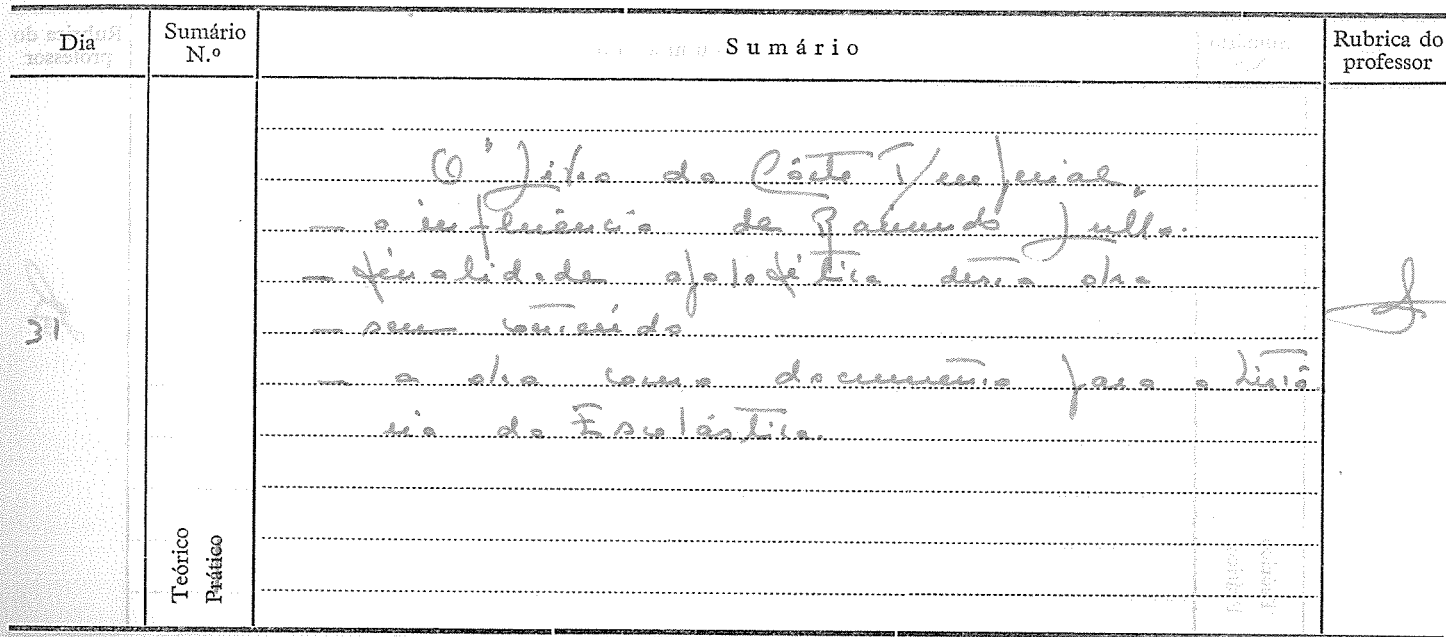 Dia
Sumário N.º
Sumário
Rubrica do professor
O "Livro da Côrte Imperial"
— a influência de Raimundo Lullo.
— finalidade apologética desta obra
— seu conteúdo
31
— a obra como documento para a histó
ria da Escolástica.
Teórico
Prático